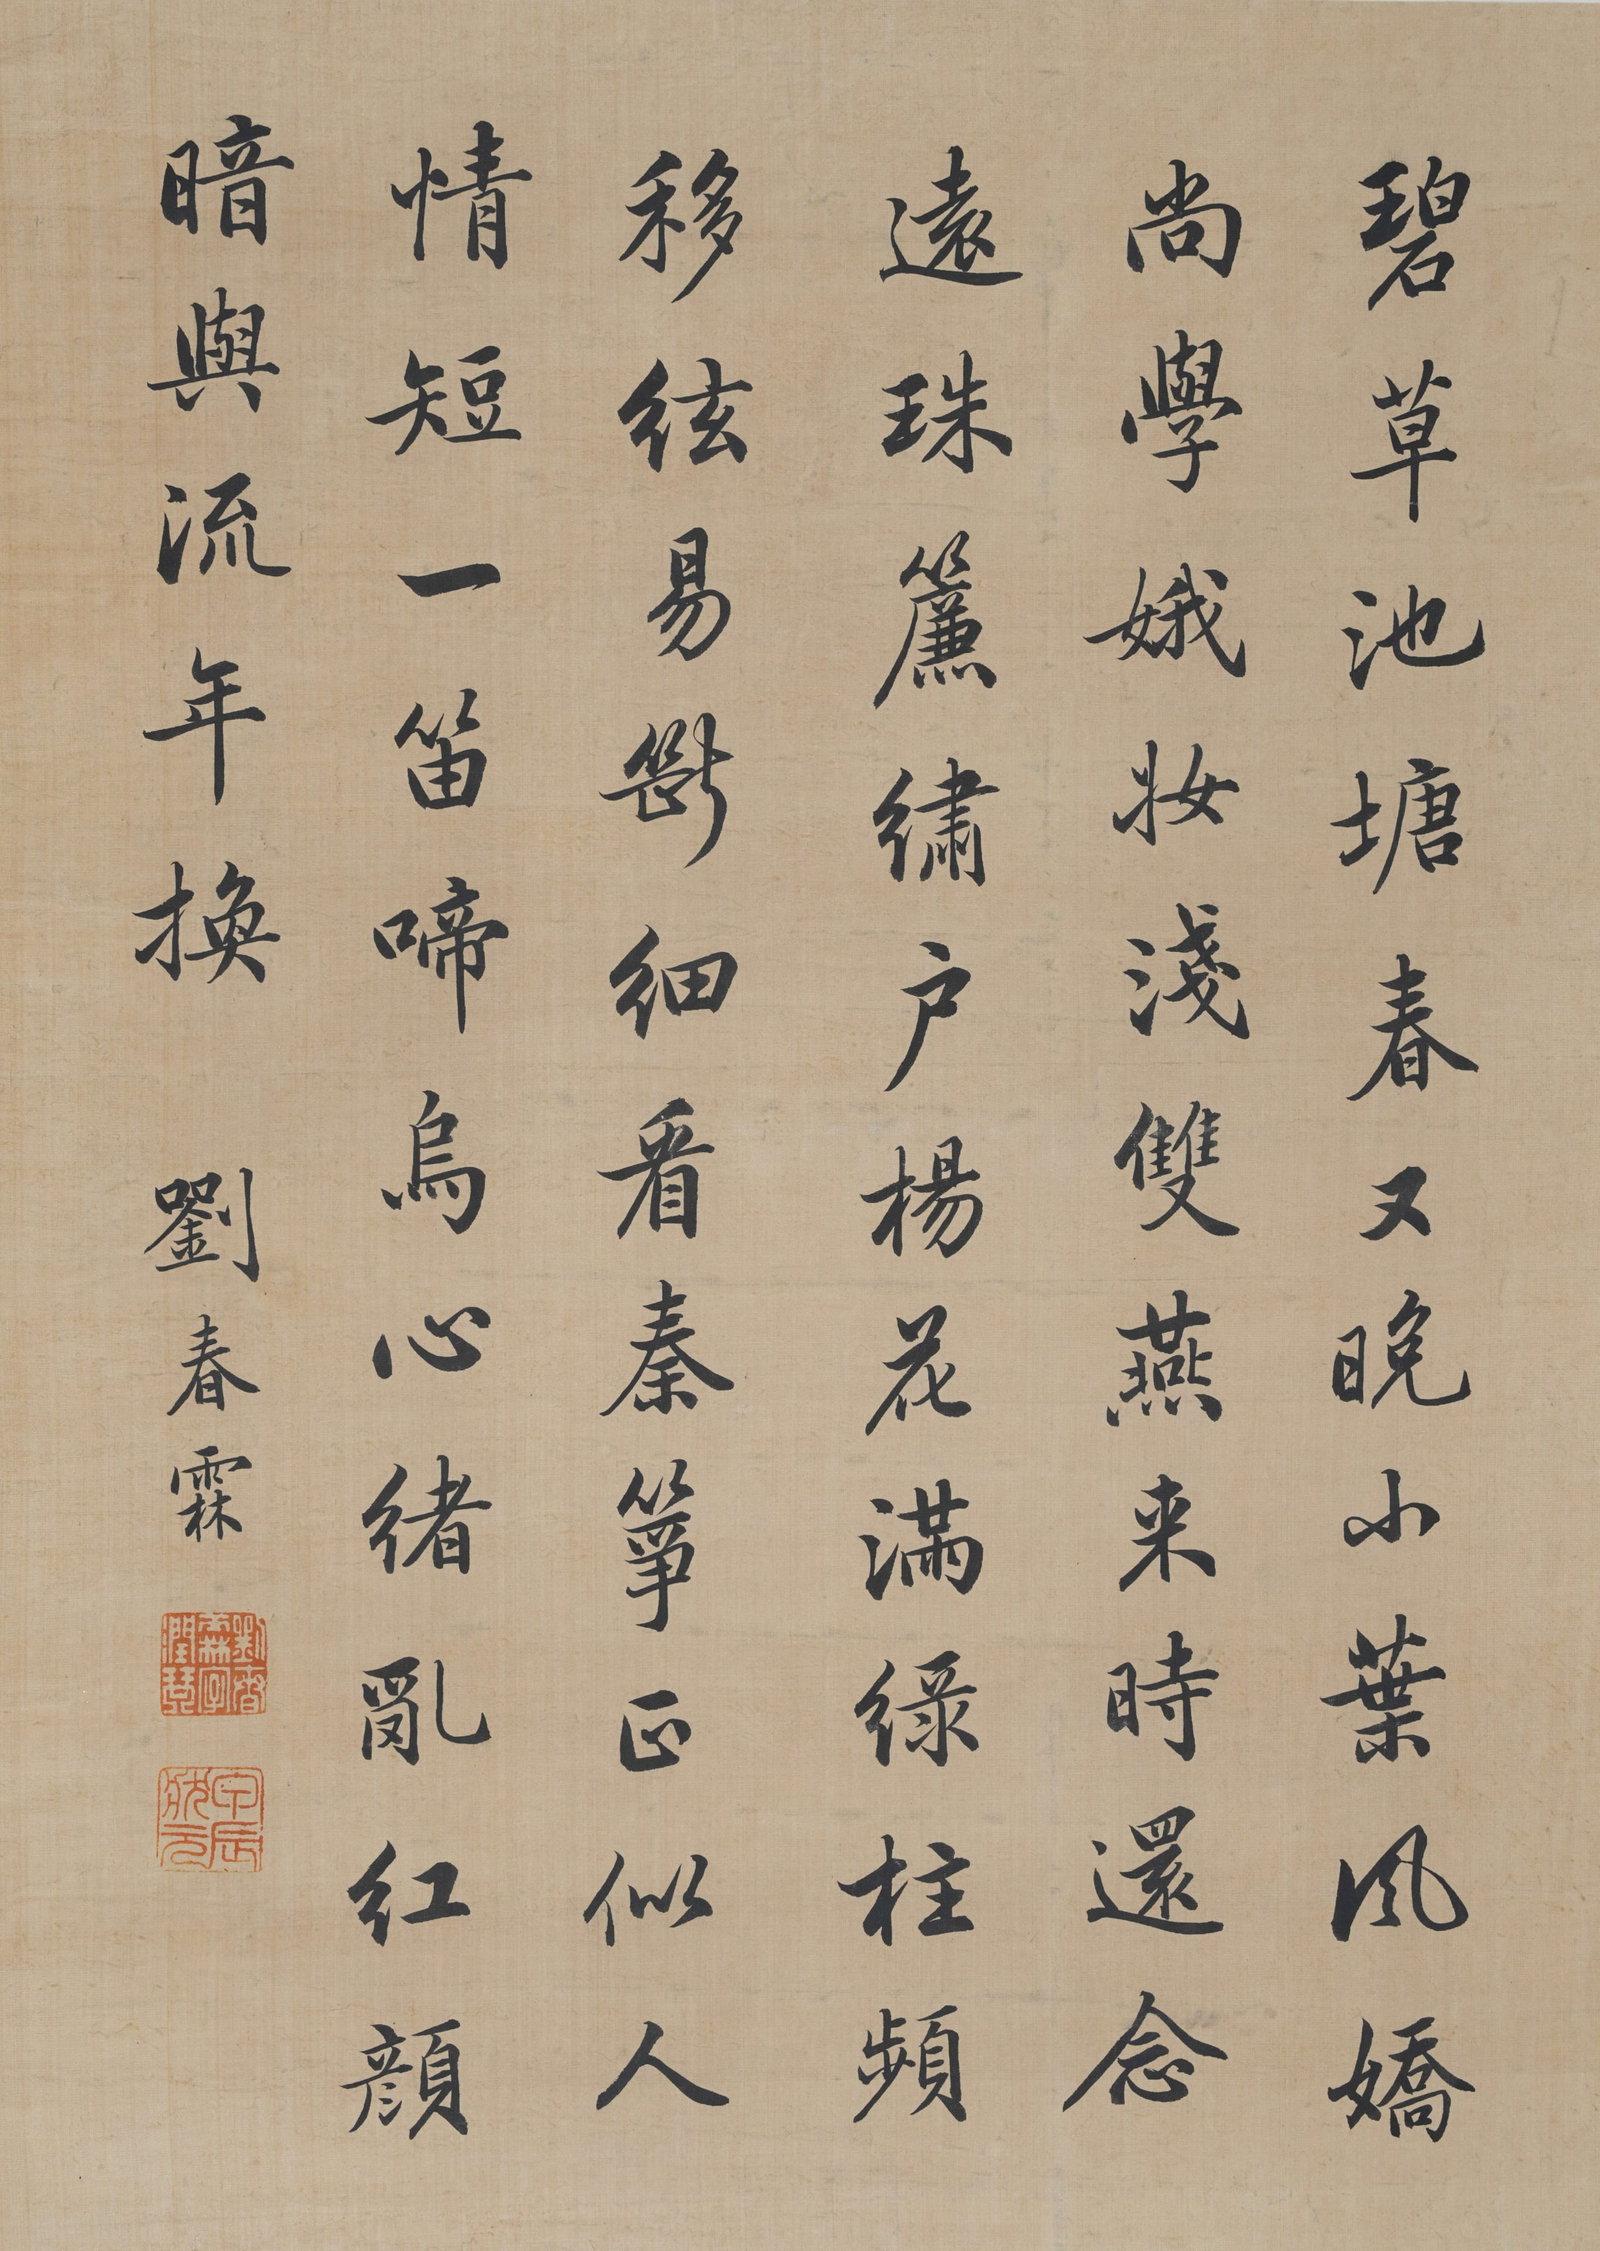 碧草池塘春又晚小葉風嬌
尚學娥妝淺雙燕来時還念
遠珠簾繡户楊花滿綠柱頻
移絃易斷細看秦箏正似人
情短一笛啼烏心緒亂紅顔
暗與流年換
劉春霖
劉春霖字潤琴
甲辰狀元